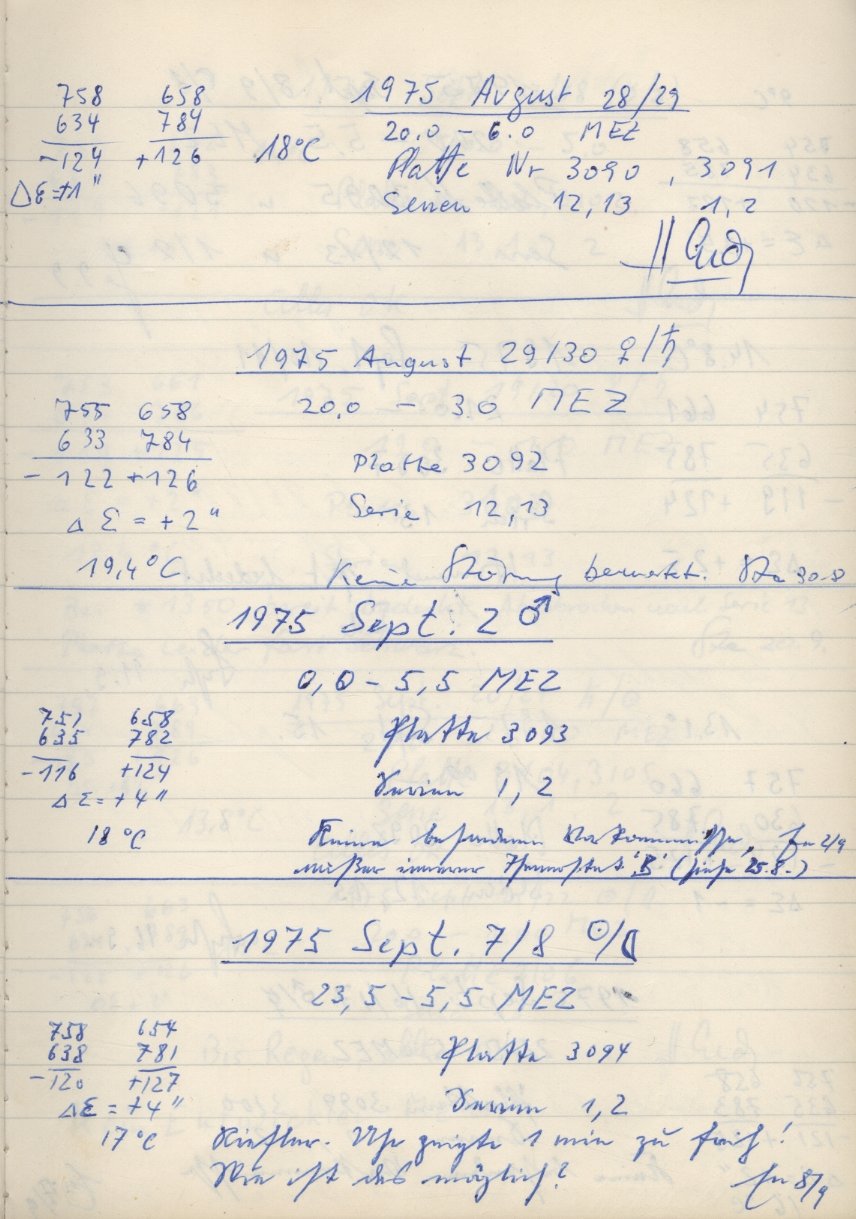 758 658 1975 August 28/29
634 784 20.0 – 6.0 MEZ
-124 +126 18°C Platte Nr 3090, 3091
Δε=+1" Serien 12,13 1,2
1975 August 29/30 ♀/♄
755 658 20,0 – 3.0 MEZ
633 784
-122 +126 Platte 3092
Δε = +2" Serie 12,13
19,4°C Keine Störung bemerkt. 30.8
1975 Sept. 2 ♂
0,0 – 5,5 MEZ
751 658 Platte 3093
635 782
-116 +124 Serien 1,2
Δε = +4"
18°C Keine besonderen Vorkommnisse, 2/9
außer innerer Thermostat 'B' (siehe 25.8.)
1975 Sept. 7/8 ☉/☾
23,5 – 5,5 MEZ
758 654 Platte 3094
638 781
-120 +127 Serien 1,2
Δε = +4"
17°C Riefler-Uhr zeigte 1 min zu früh!
Wie ist das möglich? 8/9